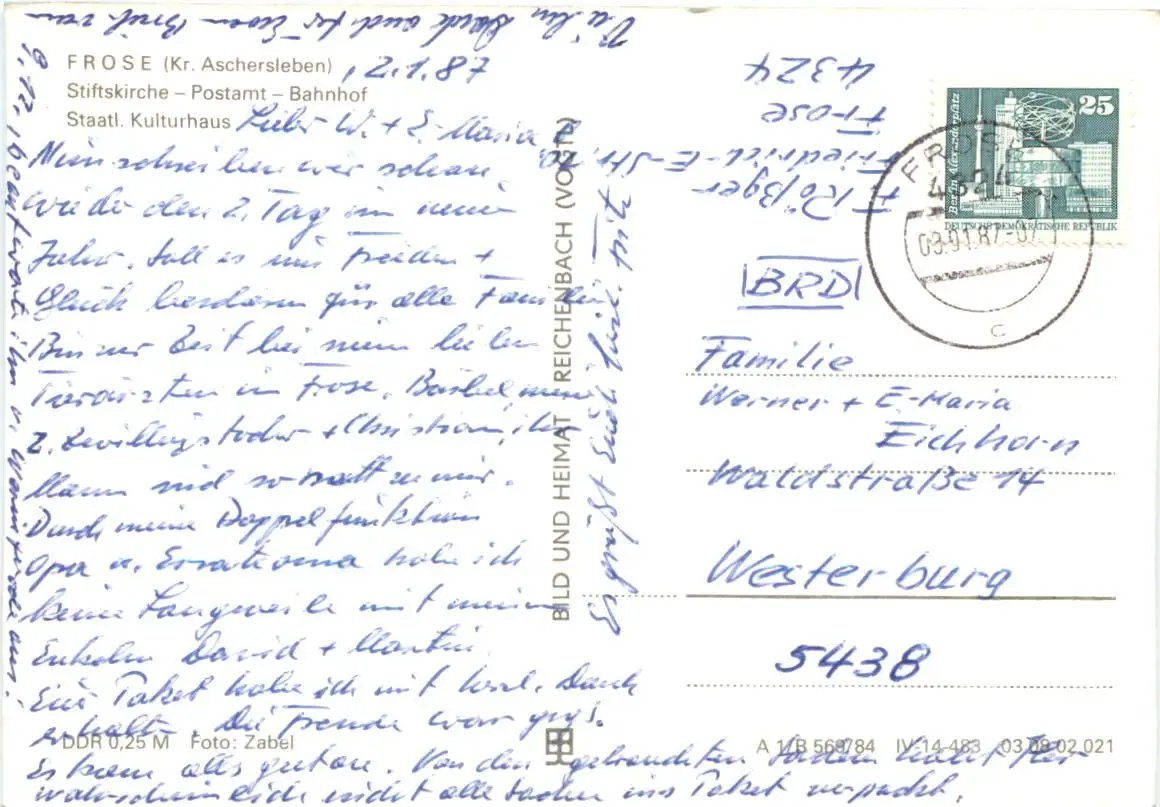 FROSE (Kr. Aschersleben)
Stiftskirche – Postamt – Bahnhof
Staatl. Kulturhaus
, 2.1.87
Liebe W. + E-Maria
Nun schreiben wir schon
wieder den 2. Tag im neuen
Jahr. Soll es uns Frieden +
Glück bescheren für alle Familien
Bin zur Zeit bei meinen lieben
Tierärzten in Frose. Bärbel, meine
2. Zwillingstochter + Christian, ihr
Mann sind so nett zu mir.
Durch meine Doppelfunktion
Opa u. Ersatzoma habe ich
keine Langweile mit meinen
Enkeln David + Martin.
Euer Paket habe ich mit herzl. Dank
erhalt. Die Freude war groß.
Es kam alles gut an. Von den gebrauchten Sachen habt Ihr
wahrscheinlich nicht alle Sachen ins Paket verpackt.
Es grüßt Euch herzl.
Vielen Dank auch für Euren Brief vom
9.12., beantworte ihn v. Wernigerode aus.
BILD UND HEIMAT REICHENBACH (VOGTL)
DDR 0,25 M Foto: Zabel
A 1/B 569/84 IV-14-483 03 08 02 021
F. Rößger
Friedrich-E-Str.
Frose
4324
25
Berlin, Alexanderplatz
DEUTSCHE DEMOKRATISCHE REPUBLIK
FROSE
4324
03.01.87-07
c
BRD
Familie
Werner + E-Maria
Eichhorn
Waldstraße 14
Westerburg
5438